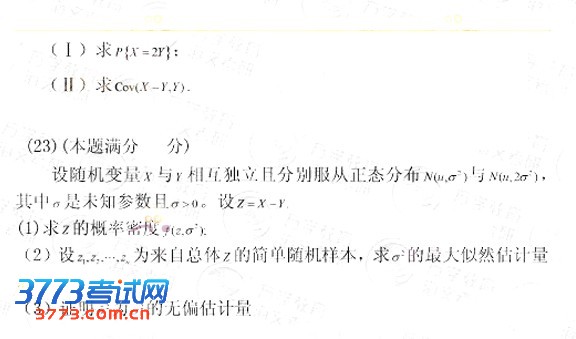 (Ⅰ)求P{X=2Y};
(Ⅱ)求Cov(X-Y,Y).
(23)(本题满分 分)
设随机变量X与Y相互独立且分别服从正态分布N(u,σ²)与N(u,2σ²),
其中σ是未知参数且σ>0。设Z=X-Y.
(1)求Z的概率密度f(z,σ²);
(2)设z₁,z₂,…,zₙ为来自总体Z的简单随机样本,求σ²的最大似然估计量
3773考试网
的无偏估计量
3773.com.cn